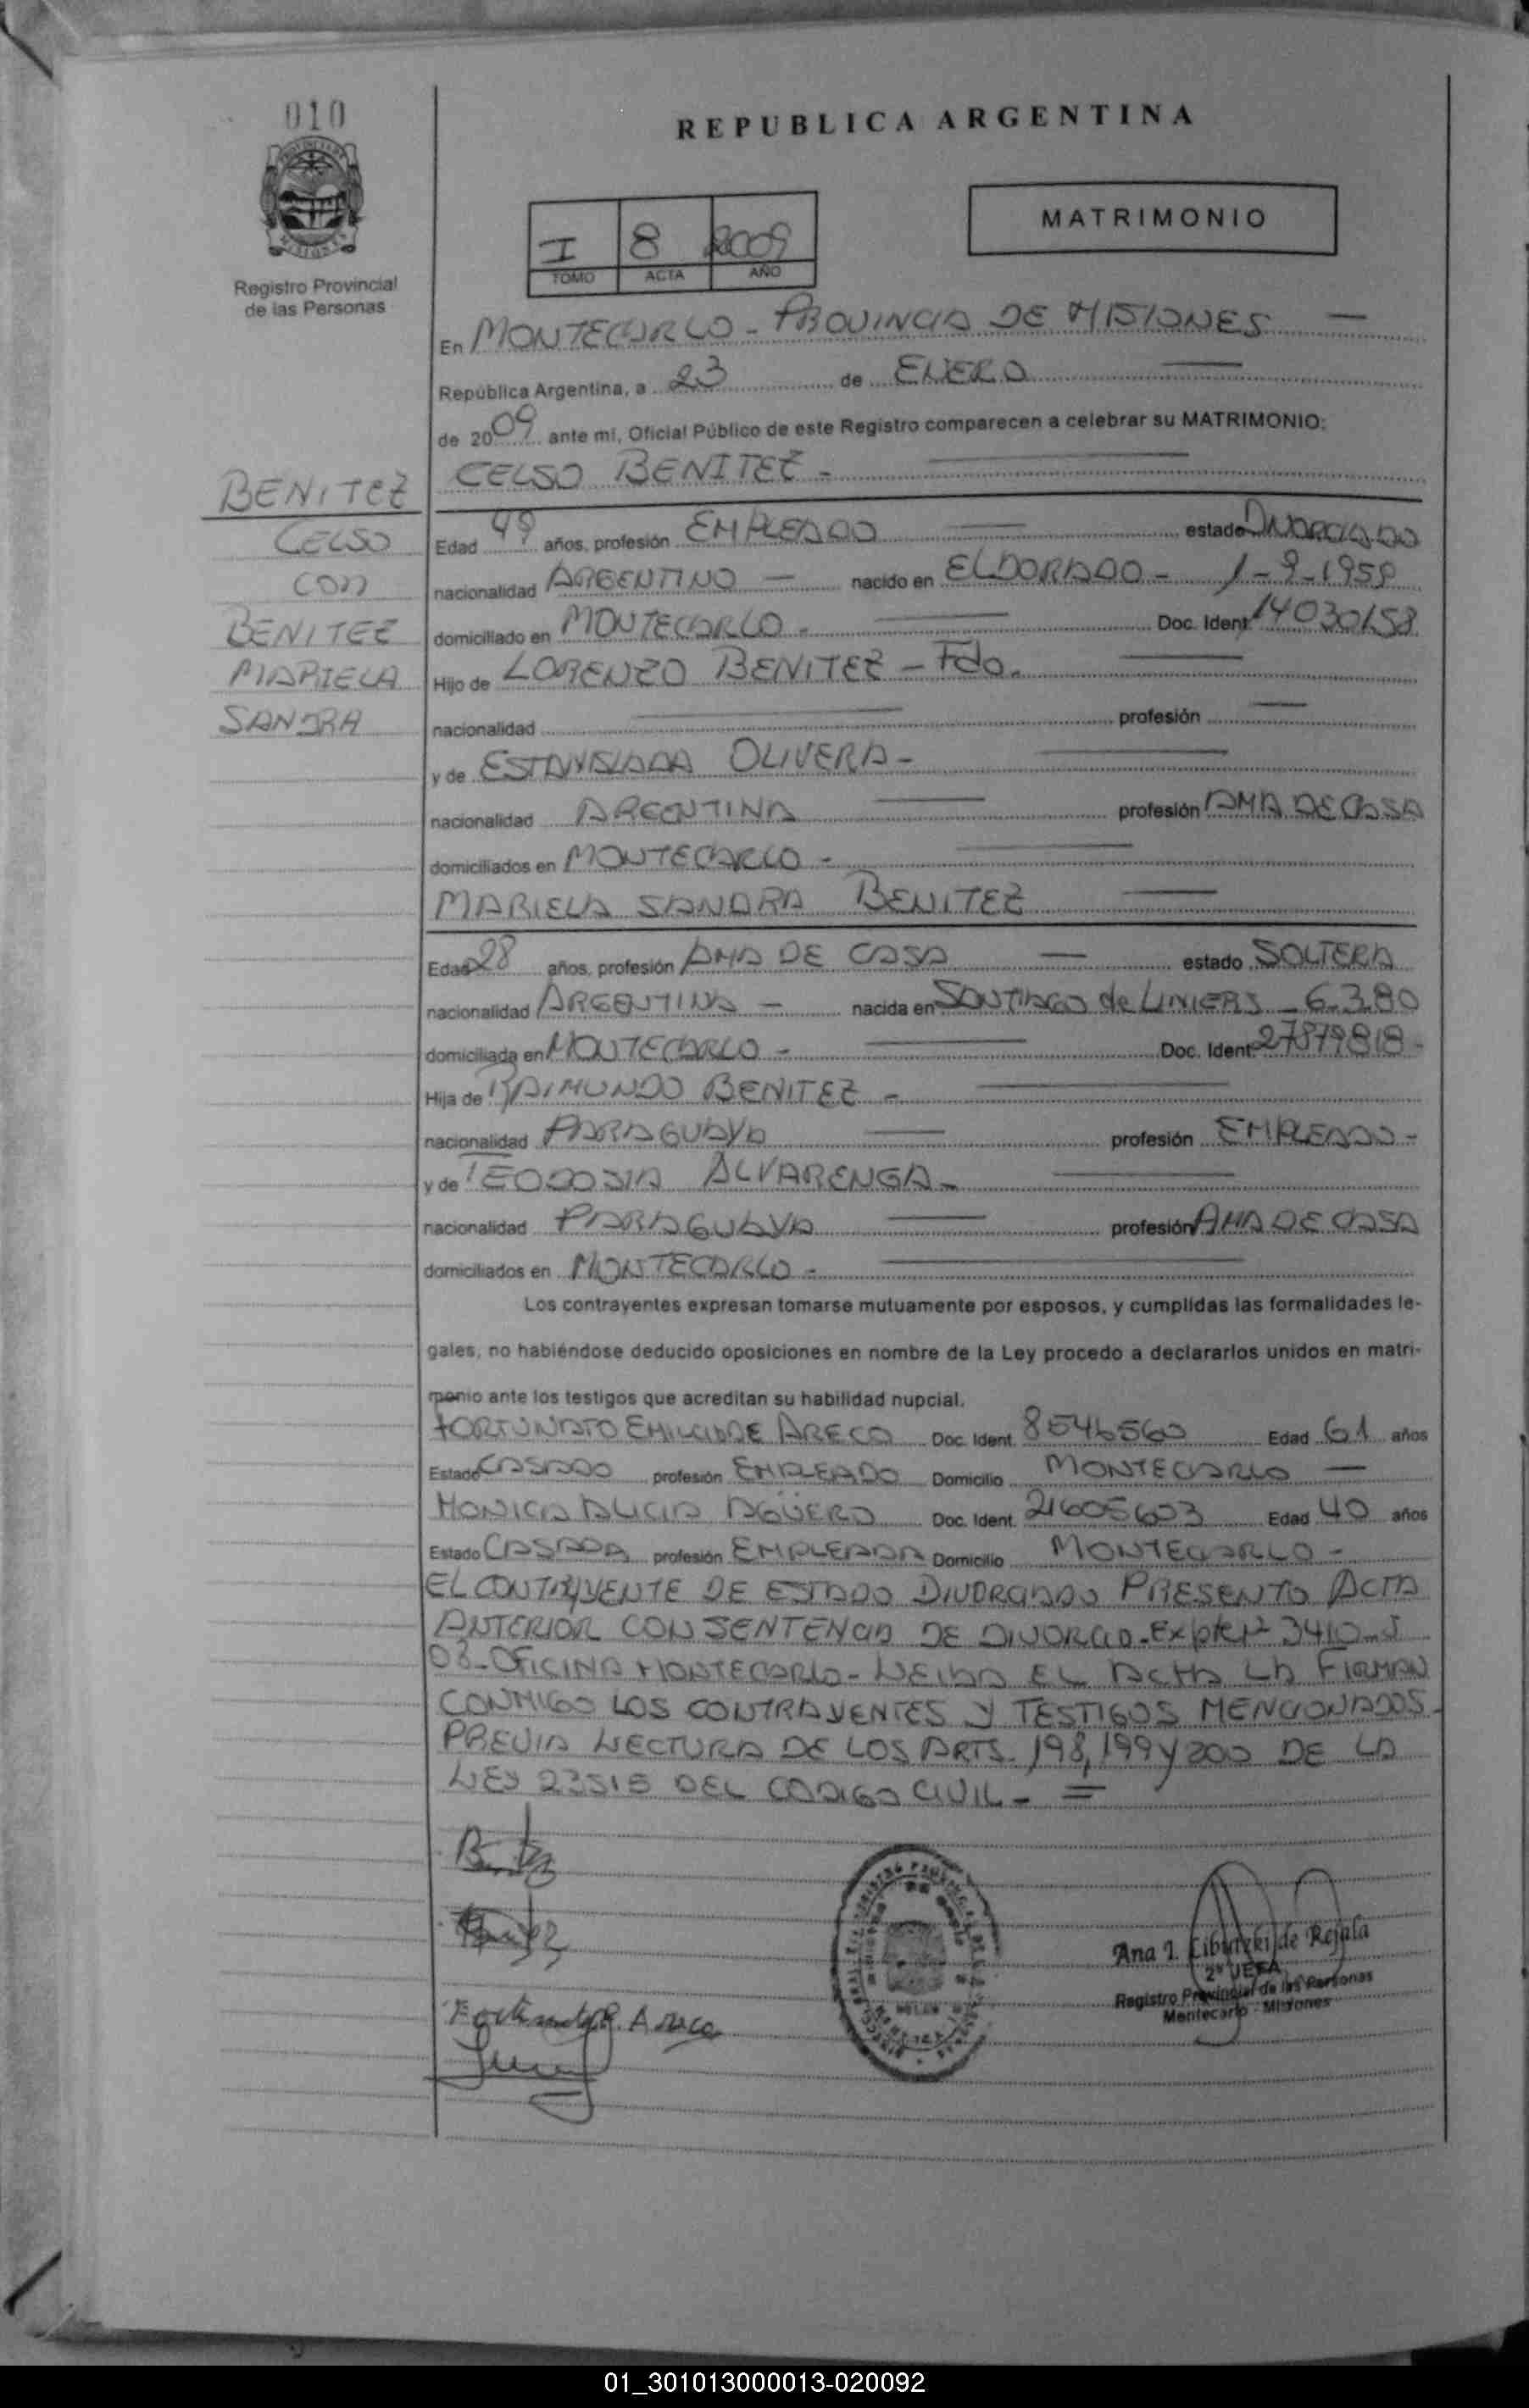 010
REPUBLICA ARGENTINA
Registro Provincial
de las Personas
I 8 2009
TOMO ACTA AÑO
MATRIMONIO
En MONTECARLO - PROVINCIA DE MISIONES —
República Argentina, a 23 de ENERO —
de 2009 ante mí, Oficial Público de este Registro comparecen a celebrar su MATRIMONIO:
BENITEZ
CELSO
CON
BENITEZ
MARIELA
SANDRA
CELSO BENITEZ - —
Edad 49 años, profesión EMPLEADO — estado DIVORCIADO
nacionalidad ARGENTINO — nacido en ELDORADO - 1-9-1959
domiciliado en MONTECARLO - — Doc. Ident. 14030158
Hijo de LORENZO BENITEZ - Fdo. —
nacionalidad — profesión —
y de ESTANISLADA OLIVERA - —
nacionalidad ARGENTINA — profesión AMA DE CASA
domiciliados en MONTECARLO - —
MARIELA SANDRA BENITEZ —
Edad 28 años, profesión AMA DE CASA — estado SOLTERA
nacionalidad ARGENTINA — nacida en SANTIAGO de LINIERS - 6.3.80
domiciliada en MONTECARLO - — Doc. Ident. 27879818 -
Hija de RAIMUNDO BENITEZ - —
nacionalidad PARAGUAYA — profesión EMPLEADO -
y de TEODOSIA ALVARENGA - —
nacionalidad PARAGUAYA — profesión AMA DE CASA
domiciliados en MONTECARLO - —
Los contrayentes expresan tomarse mutuamente por esposos, y cumplidas las formalidades le-
gales, no habiéndose deducido oposiciones en nombre de la Ley procedo a declararlos unidos en matri-
monio ante los testigos que acreditan su habilidad nupcial.
FORTUNATO EMILCIADE ARECO Doc. Ident. 8546560 Edad 61 años
Estado CASADO profesión EMPLEADO Domicilio MONTECARLO —
MONICA ALICIA AGÜERO Doc. Ident. 21605603 Edad 40 años
Estado CASADA profesión EMPLEADA Domicilio MONTECARLO -
EL CONTRAYENTE DE ESTADO DIVORCIADO PRESENTO ACTA
ANTERIOR CON SENTENCIA DE DIVORCIO - Expte Nº 3410-J
03 - OFICINA MONTECARLO - LEIDA EL ACTA LA FIRMAN
CONMIGO LOS CONTRAYENTES Y TESTIGOS MENCIONADOS -
PREVIA LECTURA DE LOS ARTS. 198, 199 y 200 DE LA
LEY 23515 DEL CODIGO CIVIL - =
Ana I. Cibutzki de Rejala
2º JEFA
Registro Provincial de las Personas
Montecarlo - Misiones
01_301013000013-020092